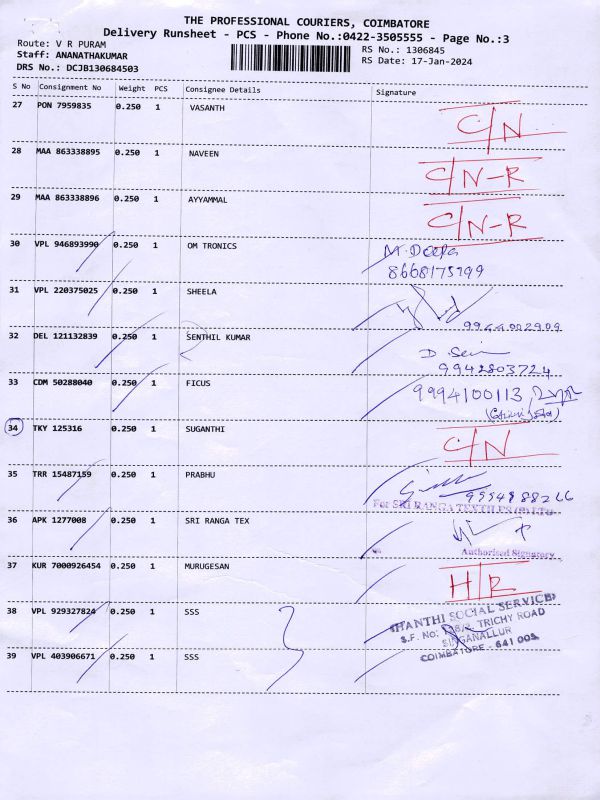 THE PROFESSIONAL COURIERS, COIMBATORE
Delivery Runsheet - PCS - Phone No.:0422-3505555 - Page No.:3
Route: V R PURAM
Staff: ANANATHAKUMAR
DRS No.: DCJB130684503
RS No.: 1306845
RS Date: 17-Jan-2024
S No Consignment No Weight PCS Consignee Details Signature
27 PON 7959835 0.250 1 VASANTH C/N
28 MAA 863338895 0.250 1 NAVEEN C/N-R
29 MAA 863338896 0.250 1 AYYAMMAL C/N-R
30 VPL 946893990 0.250 1 OM TRONICS M. Deepa
8668175799
31 VPL 220375025 0.250 1 SHEELA
9944002909
32 DEL 121132839 0.250 1 SENTHIL KUMAR D. Sen
9942803724
33 CDM 50288040 0.250 1 FICUS 9994100113
34 TKY 125316 0.250 1 SUGANTHI C/N
35 TRR 15487159 0.250 1 PRABHU
For SRI RANGA TEXTILES (P) LTD
36 APK 1277008 0.250 1 SRI RANGA TEX
Authorised Signatory
37 KUR 7000926454 0.250 1 MURUGESAN H/R
38 VPL 929327824 0.250 1 SSS
SHANTHI SOCIAL SERVICE
S.F. No: TRICHY ROAD
SINGANALLUR
COIMBATORE - 641 005.
39 VPL 403906671 0.250 1 SSS